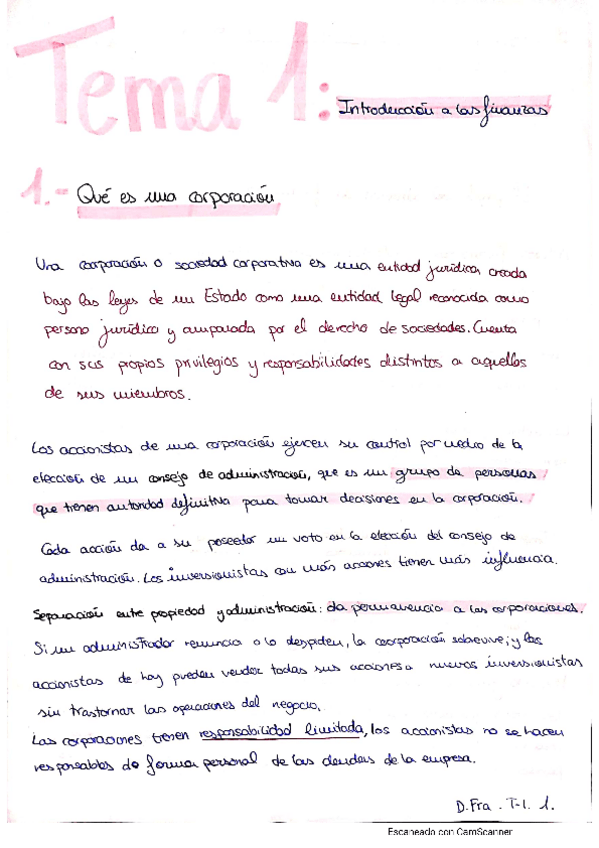 Tema 1: Introducción a las finanzas
1.- Qué es una corporación
Una corporación o sociedad corporativa es una entidad jurídica creada
bajo las leyes de un Estado como una entidad legal reconocida como
persona jurídica y amparada por el derecho de sociedades. Cuenta
con sus propios privilegios y responsabilidades distintos a aquellos
de sus miembros.
Los accionistas de una corporación ejercen su control por medio de la
elección de un consejo de administración, que es un grupo de personas
que tienen autoridad definitiva para tomar decisiones en la corporación.
Cada acción da a su poseedor un voto en la elección del consejo de
administración. Los inversionistas con más acciones tienen más influencia.
Separación entre propiedad y administración: da permanencia a las corporaciones.
Si un administrador renuncia o lo despiden, la coorporación sobrevive; y los
accionistas de hoy pueden vender todas sus acciones a nuevos inversionistas
sin trastornar las operaciones del negocio.
Las corporaciones tienen responsabilidad limitada, los accionistas no se hacen
responsables de forma personal de las deudas de la empresa.
D.Fra . T-1. 1.
Escaneado con CamScanner